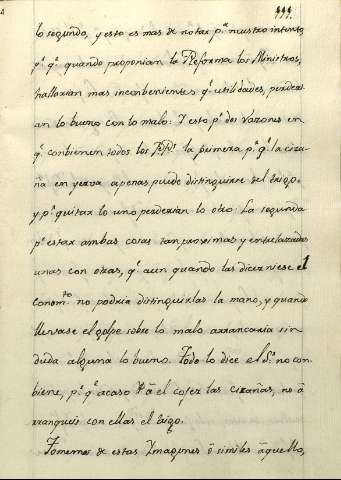 111.
lo segundo, y esto es mas de notar pª nuestro intento,
pª qª quando proponian la Reforma los Ministros,
hallarian mas incombenientes qª utilidades, perderi-
an lo bueno con lo malo: Y esto pª dos razones en
qª conbienen todos los PPˢ. la primera pª qª la ciza-
ña en yerva apenas puede distinguirse del trigo.
y pª quitar lo uno perderian lo otro: La segunda
pª estar ambas cosas tan proximas y entrelazadas
unas con otras, qª aun quando las dicerniese el
Conomᵗᵒ no podria distinguirlas la mano, y quando
llevase el golpe sobre lo malo arrancaria sin
duda alguna lo bueno. Todo lo dice el Sʳ no con-
biene, pª qª acaso al cojer las cizañas, no a-
rranqueis con ellas el trigo.
Tomemos de estas Ymagines ô similes âquello,